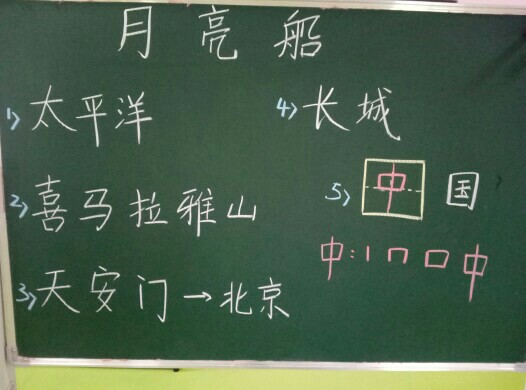 月亮船
1) 太平洋
2) 喜马拉雅山
3) 天安门→北京
4) 长城
5) 中国
中:丨 ㄇ 口 中